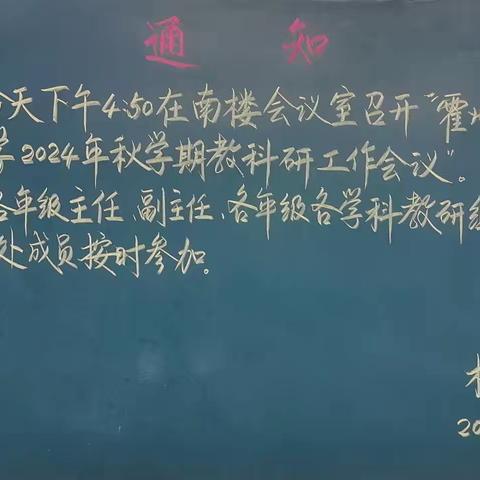 通 知
今天下午4:50在南楼会议室召开“霍州
学2024年秋学期教科研工作会议”。
各年级主任、副主任、各年级各学科教研组
处成员按时参加。
20